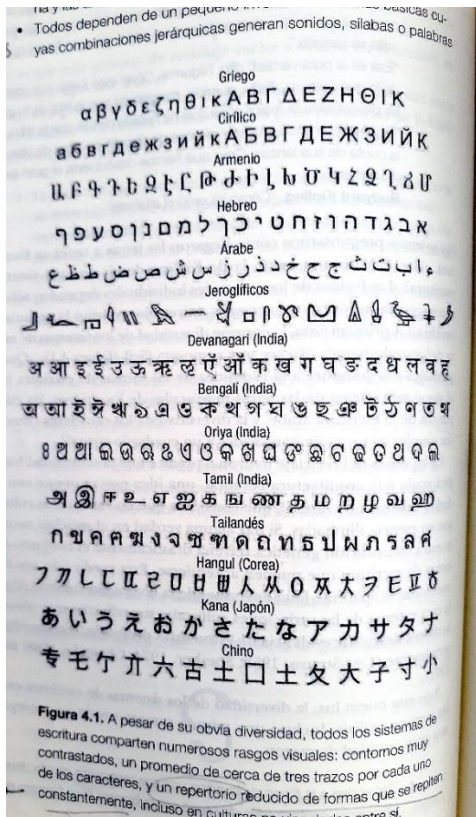 • Todos dependen de un pequeño básicas cu-
yas combinaciones jerárquicas generan sonidos, sílabas o palabras
Griego
α β γ δ ε ζ η θ ι κ Α Β Γ Δ Ε Ζ Η Θ Ι Κ
Cirílico
а б в г д е ж з и й к А Б В Г Д Е Ж З И Й К
Armenio
Hebreo
א ב ג ד ה ו ז ח ט י כ ך ל מ ם נ ן ס ע פ ף
Árabe
ء ا ب ت ث ج ح خ د ذ ر ز س ش ص ض ط ظ ع
Jeroglíficos
Devanagari (India)
अ आ इ ई उ ऊ ऋ ऌ ऍ ऑ क ख ग घ ङ द ध ल व ह
Bengalí (India)
অ আ ই ঈ ঋ ঌ এ ও ক খ গ ঘ ঙ ছ ঞ ট ঠ ণ ত থ
Oriya (India)
Tamil (India)
அ இ ஈ உ எ ஐ க ங ண த ம ற ழ வ ஹ
Tailandés
Hangul (Corea)
Kana (Japón)
あ い う え お か さ た な ア カ サ タ ナ
Chino
专 毛 亇 亣 六 古 土 口 土 夊 大 子 寸 小
Figura 4.1. A pesar de su obvia diversidad, todos los sistemas de
escritura comparten numerosos rasgos visuales: contornos muy
contrastados, un promedio de cerca de tres trazos por cada uno
de los caracteres, y un repertorio reducido de formas que se repiten
constantemente, incluso en culturas entre sí.